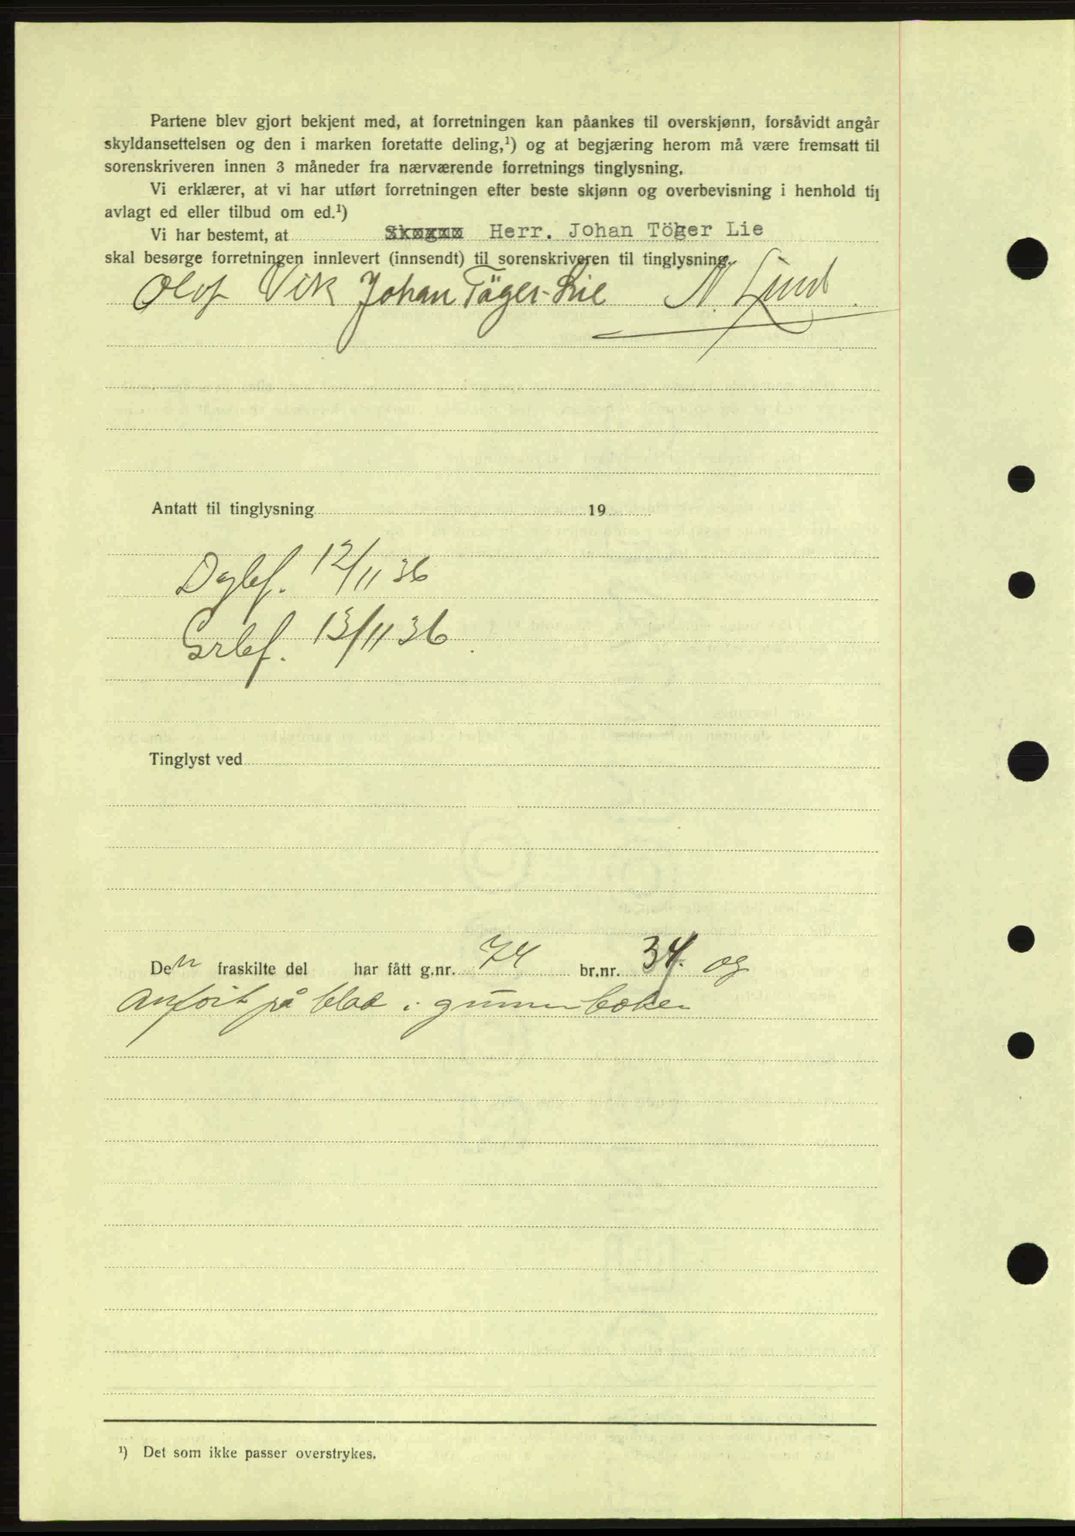 Partene blev gjort bekjent med, at forretningen kan påankes til overskjønn, forsåvidt angår
skyldansettelsen og den i marken foretatte deling,¹) og at begjæring herom må være fremsatt til
sorenskriveren innen 3 måneder fra nærværende forretnings tinglysning.
Vi erklærer, at vi har utført forretningen efter beste skjønn og overbevisning i henhold til
avlagt ed eller tilbud om ed.¹)
Vi har bestemt, at Herr. Johan Töger Lie
skal besørge forretningen innlevert (innsendt) til sorenskriveren til tinglysning.
Olof Vik Johan Töger-Lie N. Lund
Antatt til tinglysning 19
Dglef. 12/11 36
Grlef. 13/11 36
Tinglyst ved
Den fraskilte del har fått g.nr. 74 br.nr. 34. og
Anført på blad i grunnboken
¹) Det som ikke passer overstrykes.